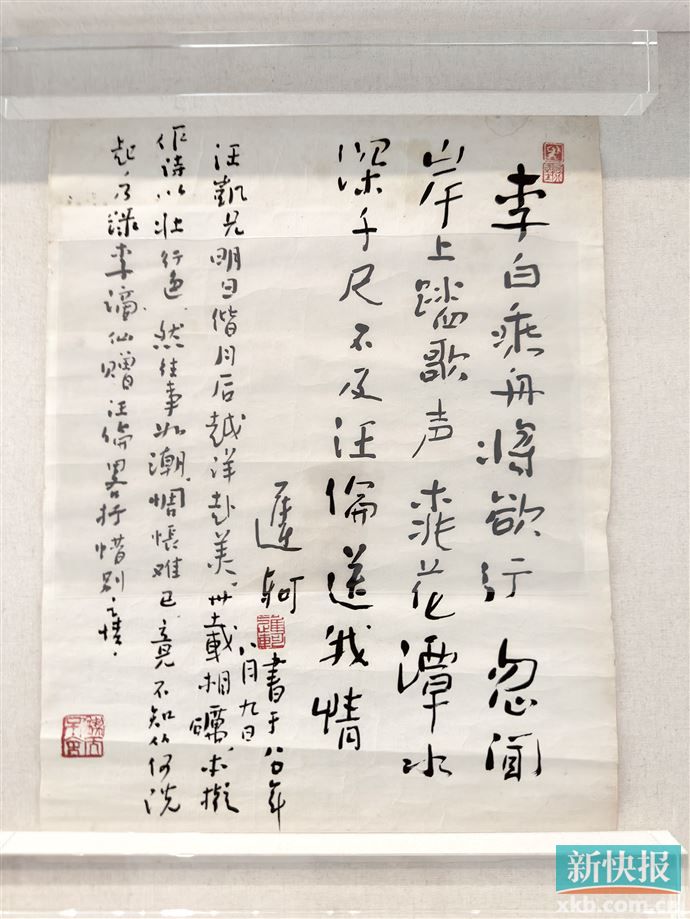 李白乘舟将欲行忽闻
岸上踏歌声桃花潭水
深千尺不及汪倫送我情
遲軻
書于八〇年
八月九日
汪凱兄明日偕月后越洋赴美，卅載相曠，本擬
作诗以壮行色，然往事如潮，惆怅难已，竟不知从何说
起，乃録李谪仙赠汪倫畧抒惜别之情。
新快报
xkb.com.cn